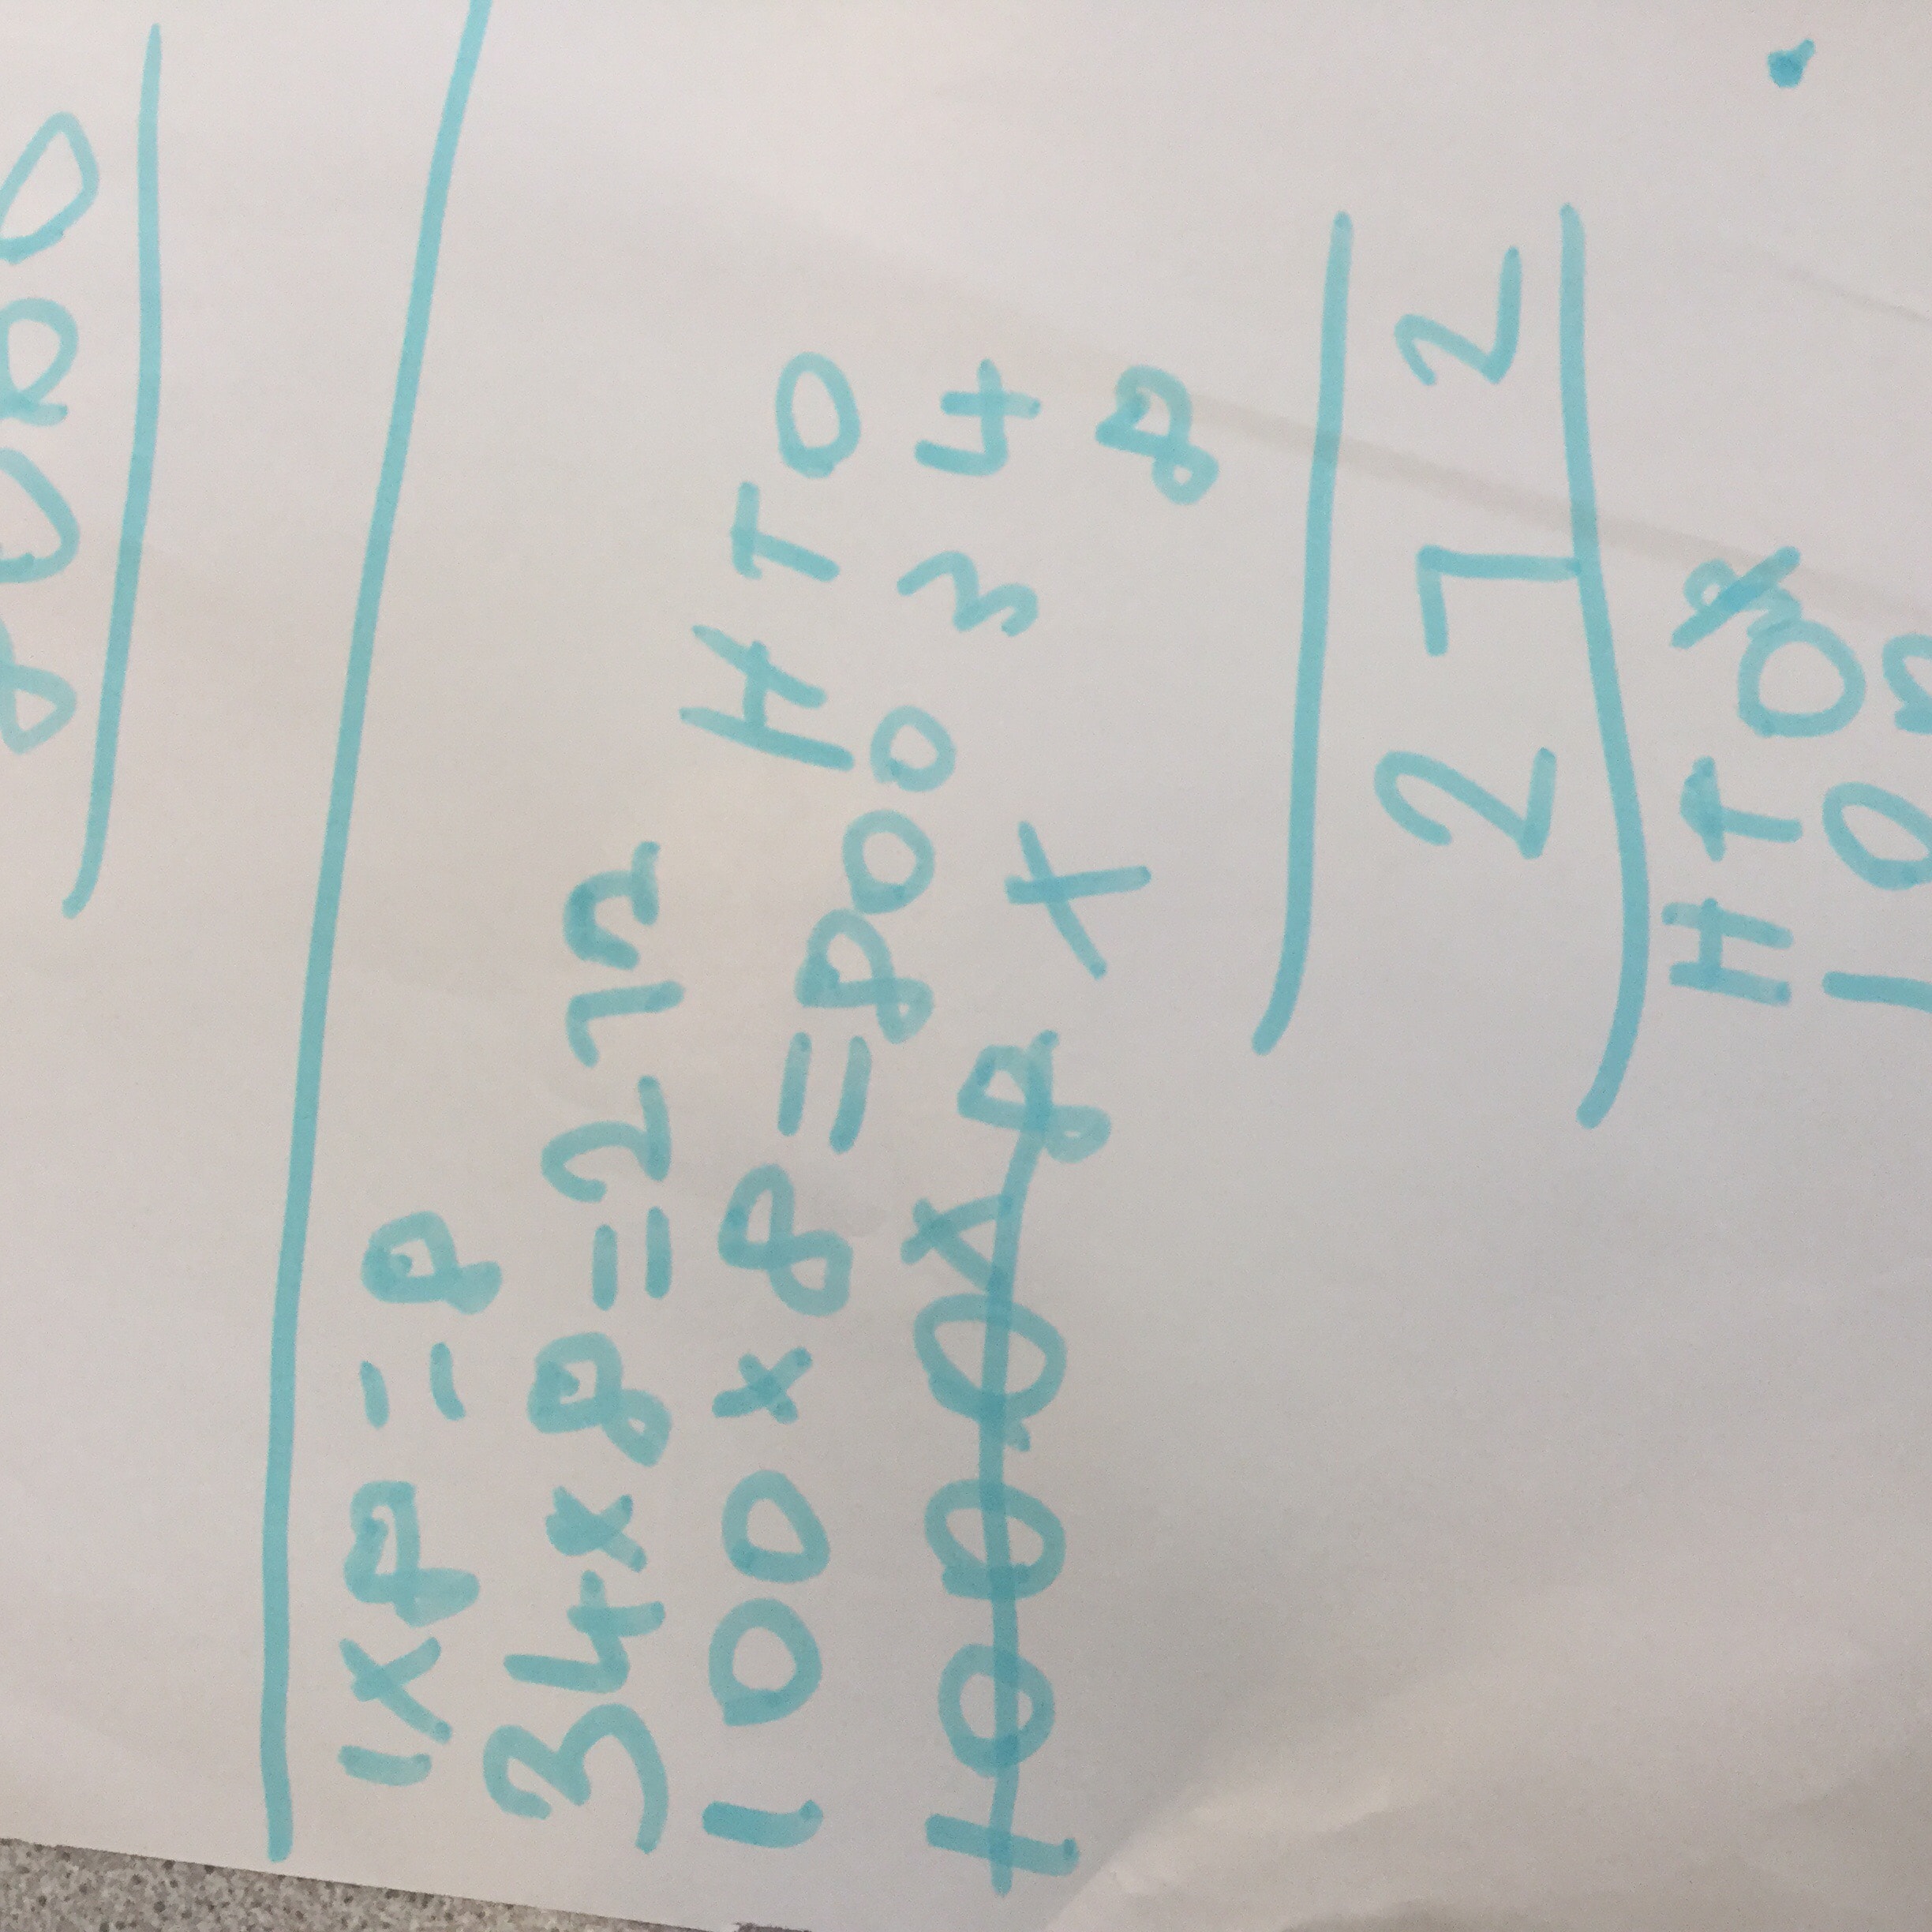 1x8=8
34x8=272
100x8=800
1000x8
H T O
3 4
x 8
2 7 2
H T O